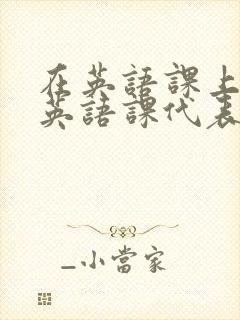 在英語課上
英語課代表
_小當家